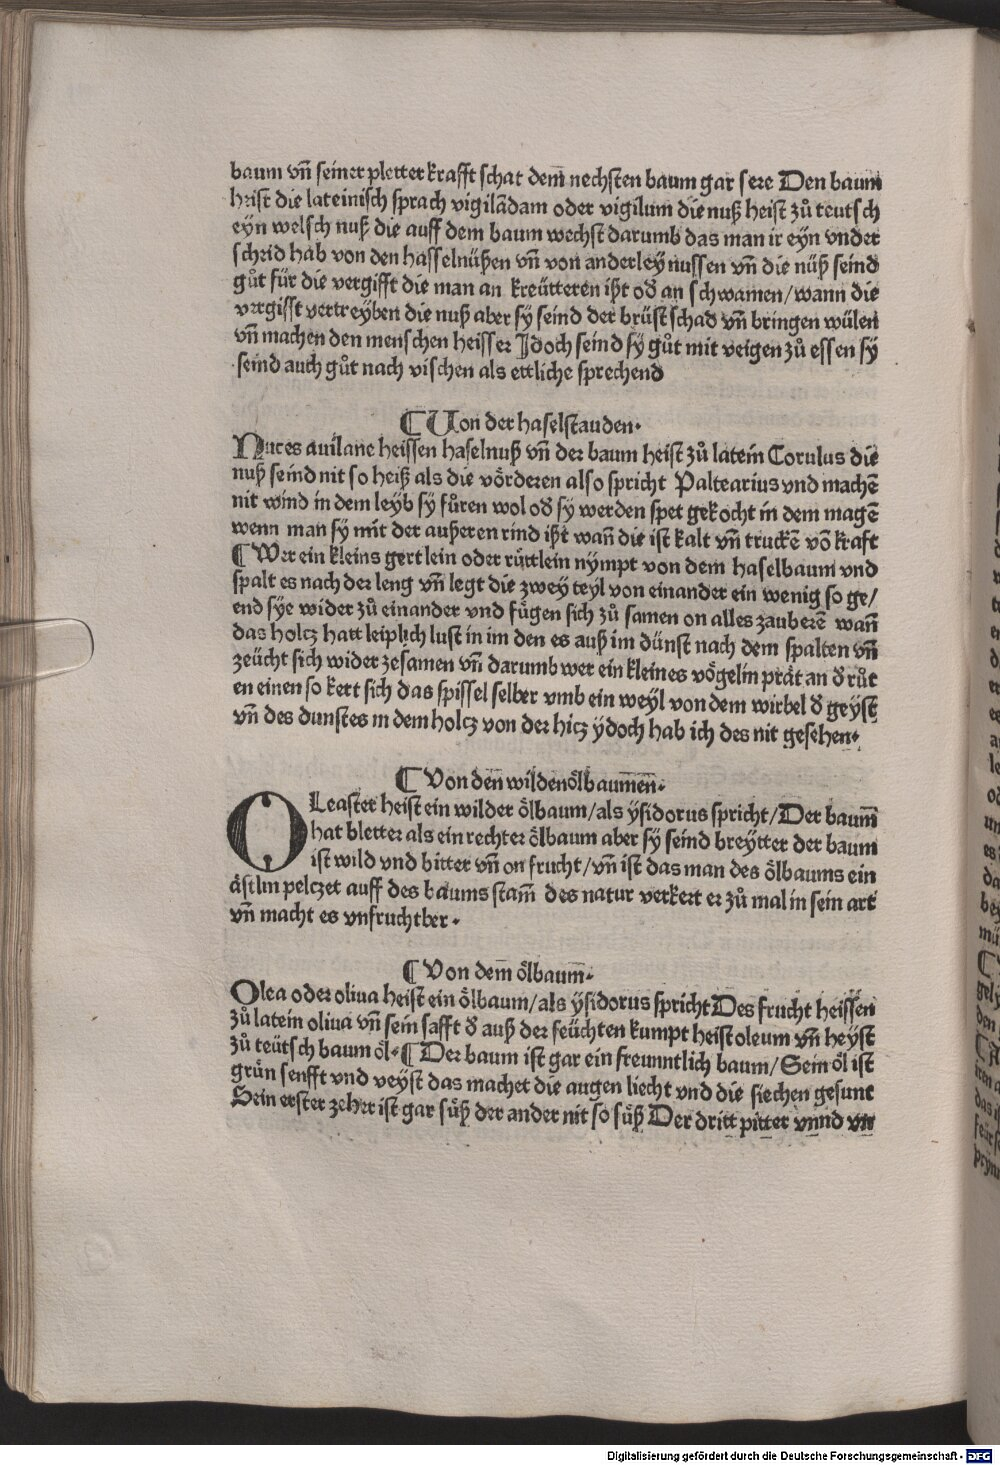 baum vn̄ seiner pletter krafft schat dem̄ nechsten baum gar sere Den baum
heist die lateinisch sprach vigilādam oder vigilum die nuß heist zů teutsch
eyn welsch nuß die auff dem baum wechst darumb das man ir eyn vnder
scheid hab von den hasselnüßen vn̄ von anderley nussen vn̄ die nüß seind
gůt für die vergifft die man an kreütteren ißt od̄ an schwamen/wann die
vergifft vertreyben die nuß aber sy seind der brüst schad vn̄ bringen wülen
vn̄ machen den menschen heisser Jdoch seind sy gůt mit veigen zů essen sy
seind auch gůt nach vischen als ettliche sprechend
¶ Von der haselstauden.
Nuces auilane heissen haselnuß vn̄ der baum heist zů latein Corulus die
nuß seind nit so heiß als die vörderen also spricht Paltearius vnd machē
nit wind in dem leyb sy fůren wol od̄ sy werden spet gekocht in dem magē
wenn man sy mit der außeren rind ißt wan̄ die ist kalt vn̄ truckē vō kraft
¶ Wer ein kleins gertlein oder rüttlein nympt von dem haselbaum vnd
spalt es nach der leng vn̄ legt die zwey teyl von einander ein wenig so ge/
end sye wider zů einander vnd fügen sich zů samen on alles zauberē wan̄
das holcz hatt leiplich lust in im den es auß im dünst nach dem spalten vn̄
zeücht sich wider zesamen vn̄ darumb wer ein kleines vögelin prät an d̄ růt
en einen so kert sich das spissel selber vmb ein weyl von dem wirbel d̄ geyst
vn̄ des dunstes in dem holcz von der hicz ydoch hab ich des nit gesehen.
¶ Von den̄ wildenölbaum̄en̄.
OLeaster heist ein wilder ölbaum/als ysidorus spricht/Der baum̄
hat bletter als ein rechter ölbaum aber sy seind breytter der baum
ist wild vnd bitter vn̄ on frucht/vn̄ ist das man des ölbaums ein
ästlin pelczet auff des baums stam̄ des natur verkert er zů mal in sein art
vn̄ macht es vnfruchtber.
¶ Von dem̄ ölbaum̄.
Olea oder oliua heist ein ölbaum/als ysidorus spricht Des frucht heissen
zů latein oliua vn̄ sein safft d̄ auß der feüchten kumpt heist oleum vn̄ heyst
zů teütsch baum öl. ¶ Der baum ist gar ein freunntlich baum/Sein öl ist
grün senfft vnd veyst das machet die augen liecht vnd die siechen gesunt
Sein erster zeher ist gar süß der ander nit so süß Der dritt pitter vnnd vn
Digitalisierung gefördert durch die Deutsche Forschungsgemeinschaft - DFG